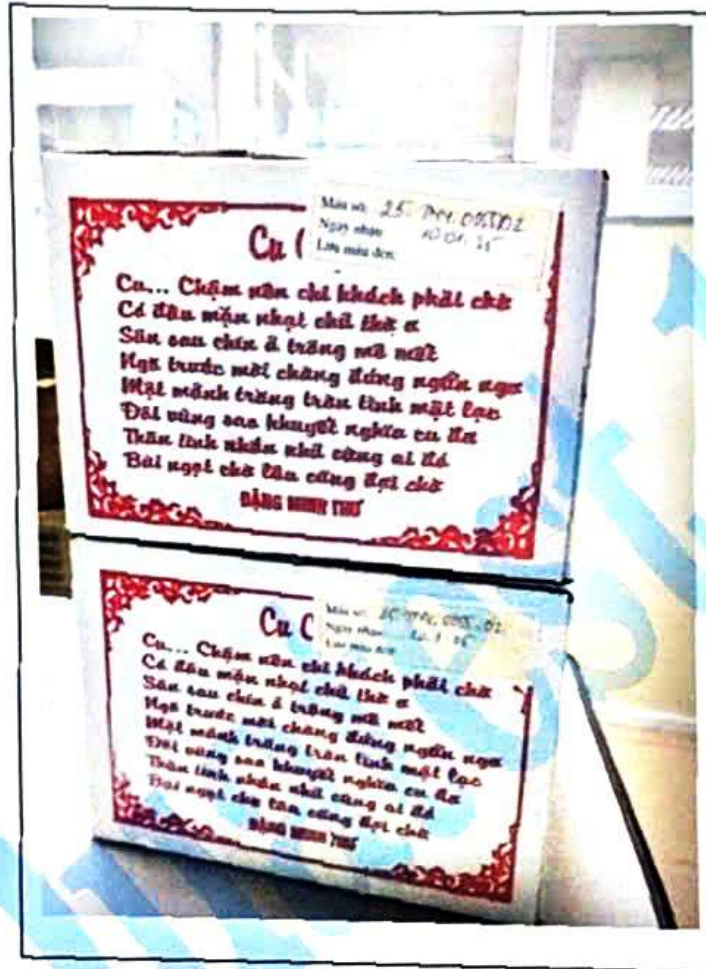 Mẫu số: 25.
Ngày nhận 10.01.25
Lưu mẫu đến:
Cu C
Cu... Chậm nên chi khách phải chờ
Cá đâu mặn nhạt chữ thờ ơ
Sân sau chín ả trông mê mệt
Ngõ trước mời chàng đứng ngẩn ngơ
Một mảnh trăng tròn tình mật lạc
Đôi vùng sao khuyết nghĩa cu đa
Thân tình nhắn nhủ cùng ai đó
Bùi ngọt chờ lâu cũng đợi chờ
ĐẶNG MINH THƯ
Mẫu số:
Ngày nhận
Lưu mẫu đến
Cu C
Cu... Chậm nên chi khách phải chờ
Cá đâu mặn nhạt chữ thờ ơ
Sân sau chín ả trông mê mệt
Ngõ trước mời chàng đứng ngẩn ngơ
Một mảnh trăng tròn tình mật lạc
Đôi vùng sao khuyết nghĩa cu đa
Thân tình nhắn nhủ cùng ai đó
Bùi ngọt chờ lâu cũng đợi chờ
ĐẶNG MINH THƯ